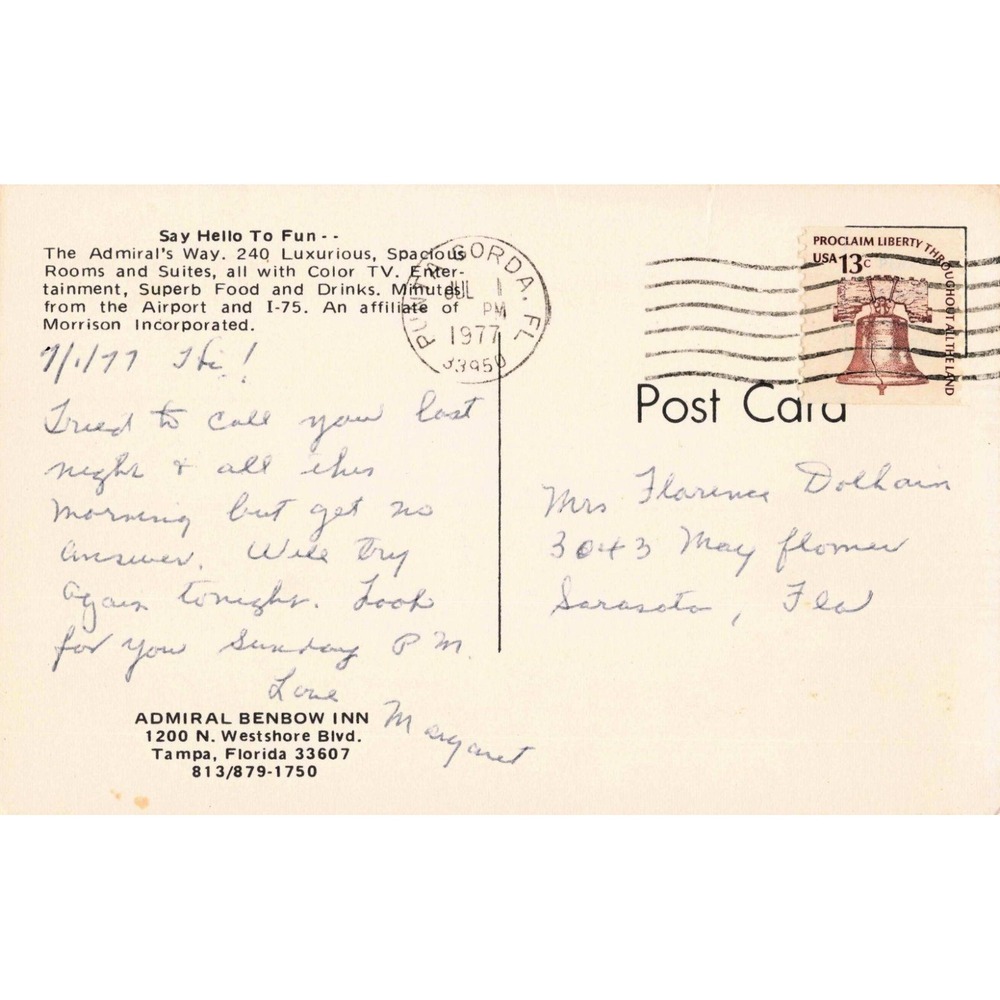 Say Hello To Fun - -
The Admiral's Way. 240 Luxurious, Spacious
Rooms and Suites, all with Color TV. Enter-
tainment, Superb Food and Drinks. Minutes
from the Airport and I-75. An affiliate of
Morrison Incorporated.
7/1/77 Hi!
Tried to call you last
night & all this
morning but get no
answer. Will try
again tonight. Look
for you Sunday P.M.
Love
Margaret
ADMIRAL BENBOW INN
1200 N. Westshore Blvd.
Tampa, Florida 33607
813/879-1750
PUNTA GORDA, FL
JUL 1
PM
1977
33950
PROCLAIM LIBERTY THROUGHOUT ALL THE LAND
USA 13c
Post Card
Mrs Florence Dolhain
3043 May flower
Sarasota, Fla